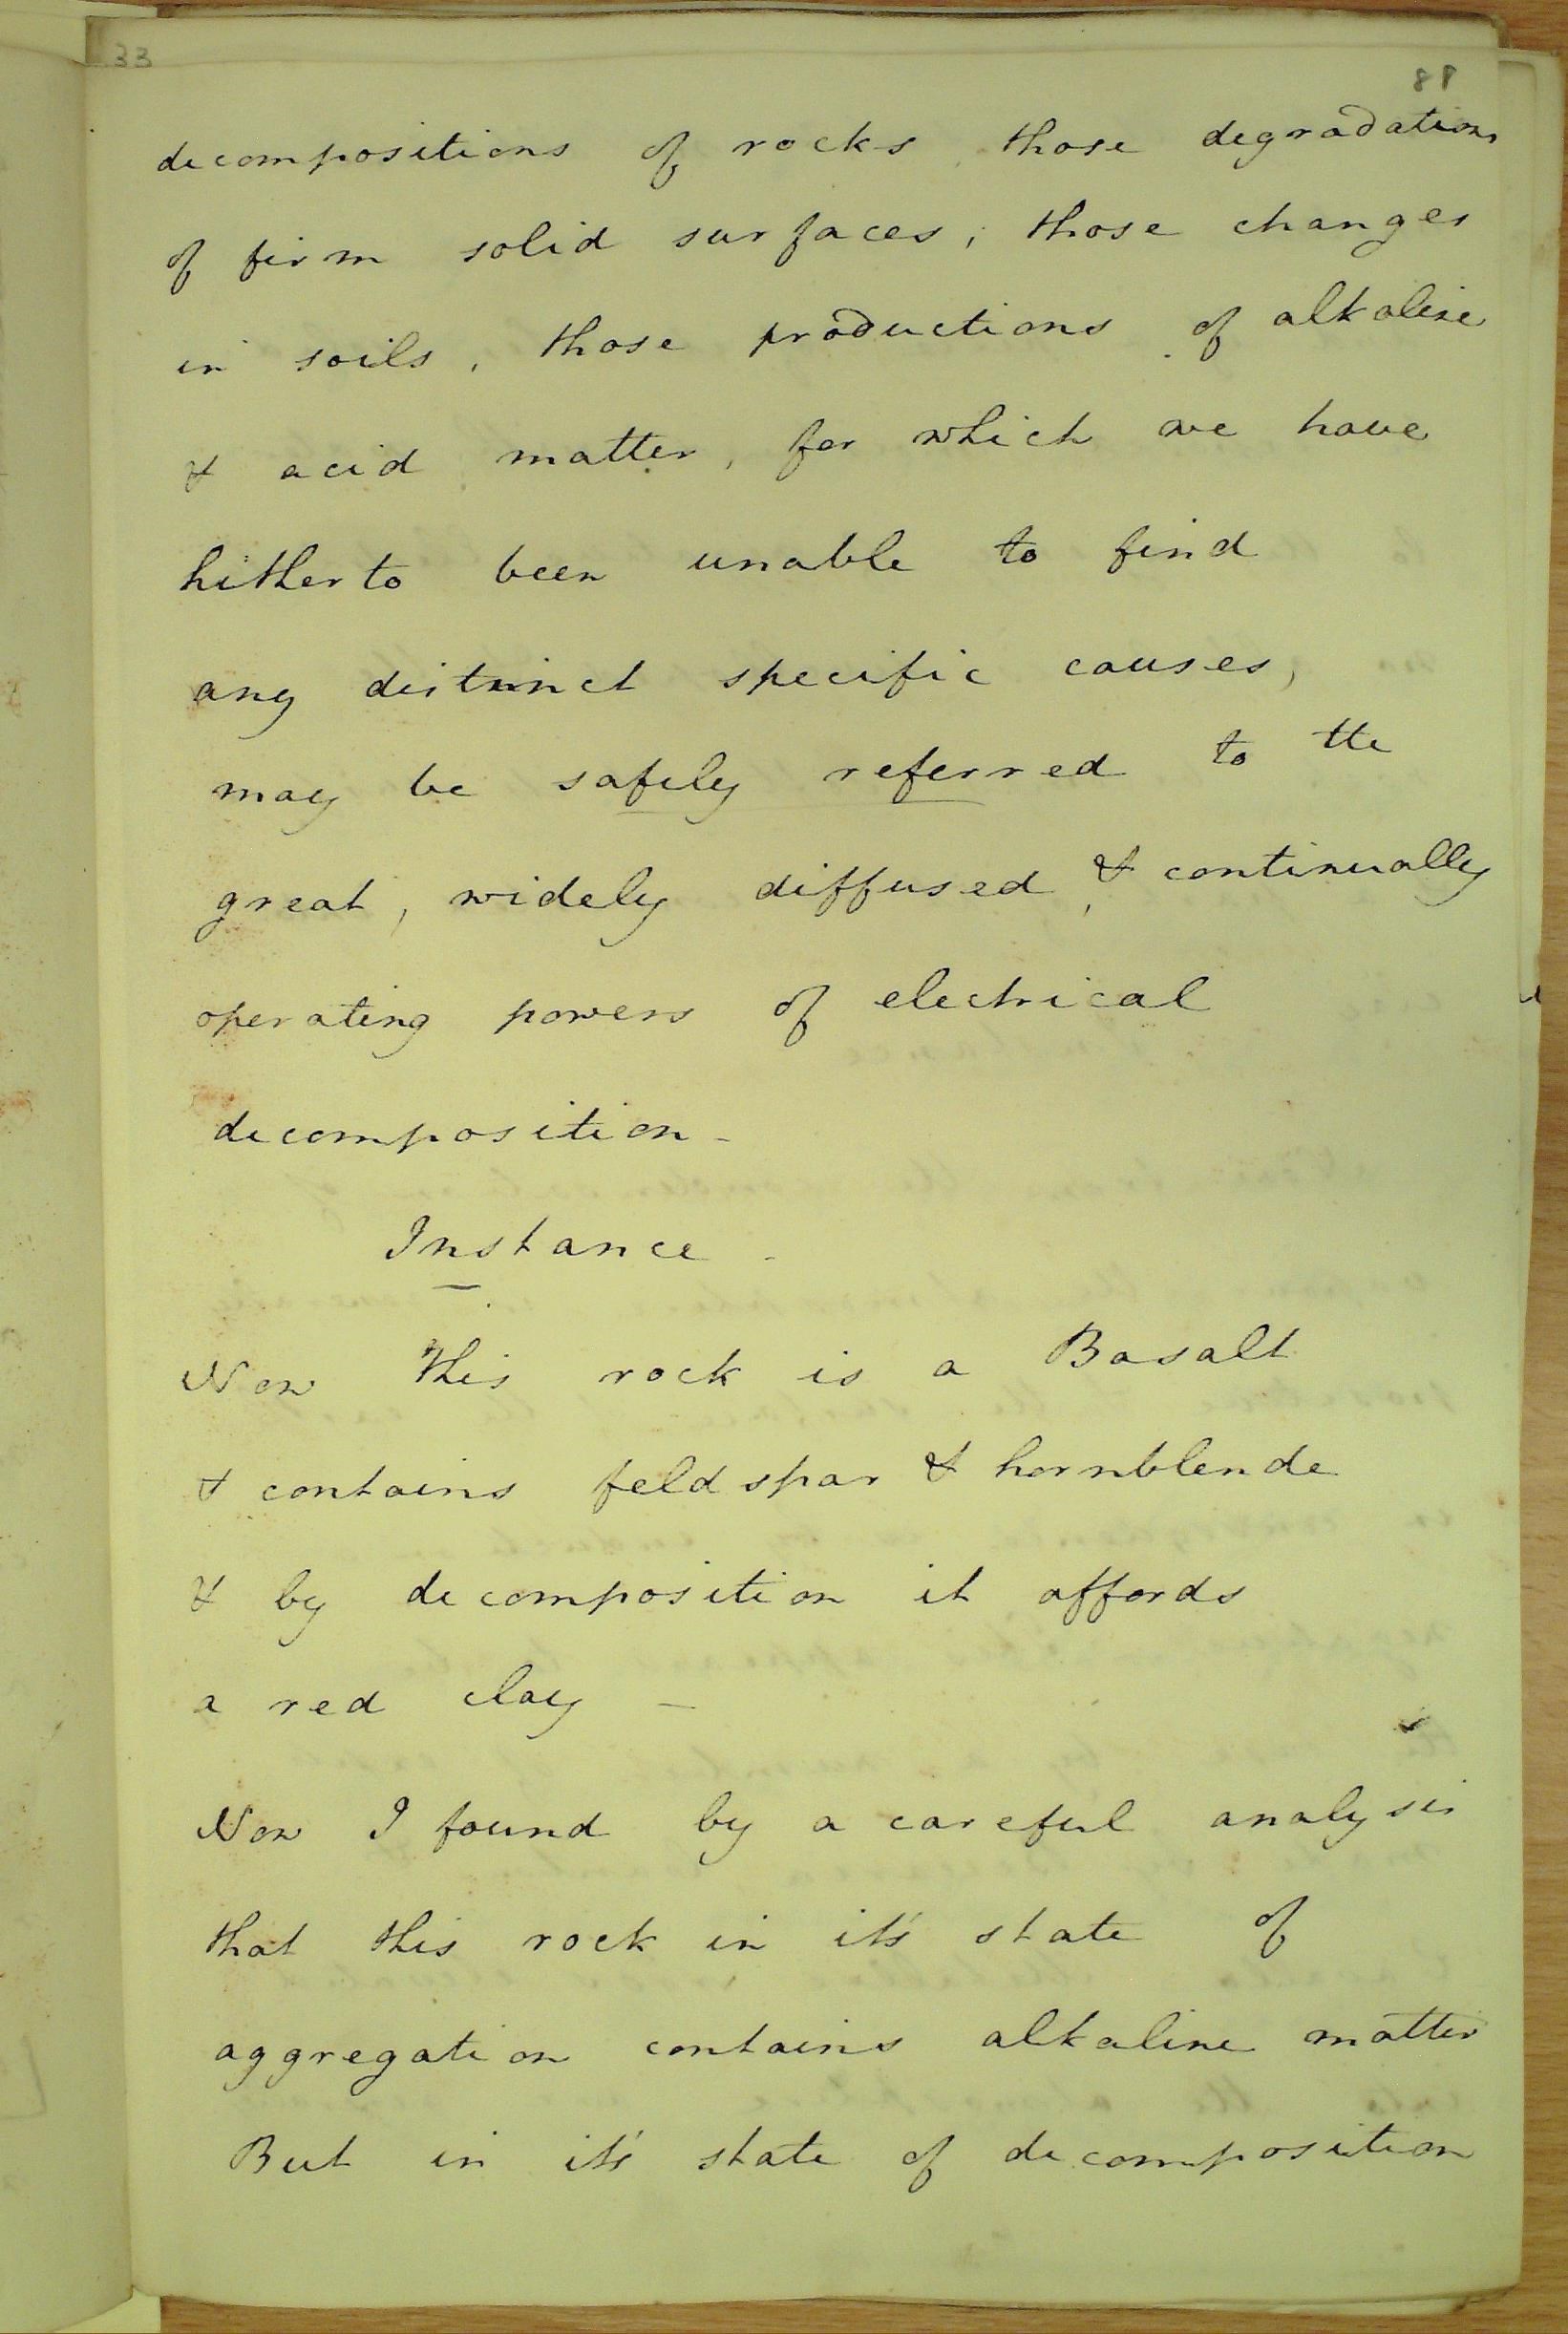 33
88
decompositions of rocks those degradations
of firm solid surfaces, those changes
in soils, those productions of alkaline
& acid matter, for which we have
hitherto been unable to find
any distinct specific causes,
may be safely referred to the
great, widely diffused, & continually
operating powers of electrical
decomposition -
Instance -
Now this rock is a Basalt
& contains feldspar & hornblende
& by decomposition it affords
a red clay -
Now I found by a careful analysis
that this rock in it's state of
aggregation contains alkaline matter
But in it's state of decomposition